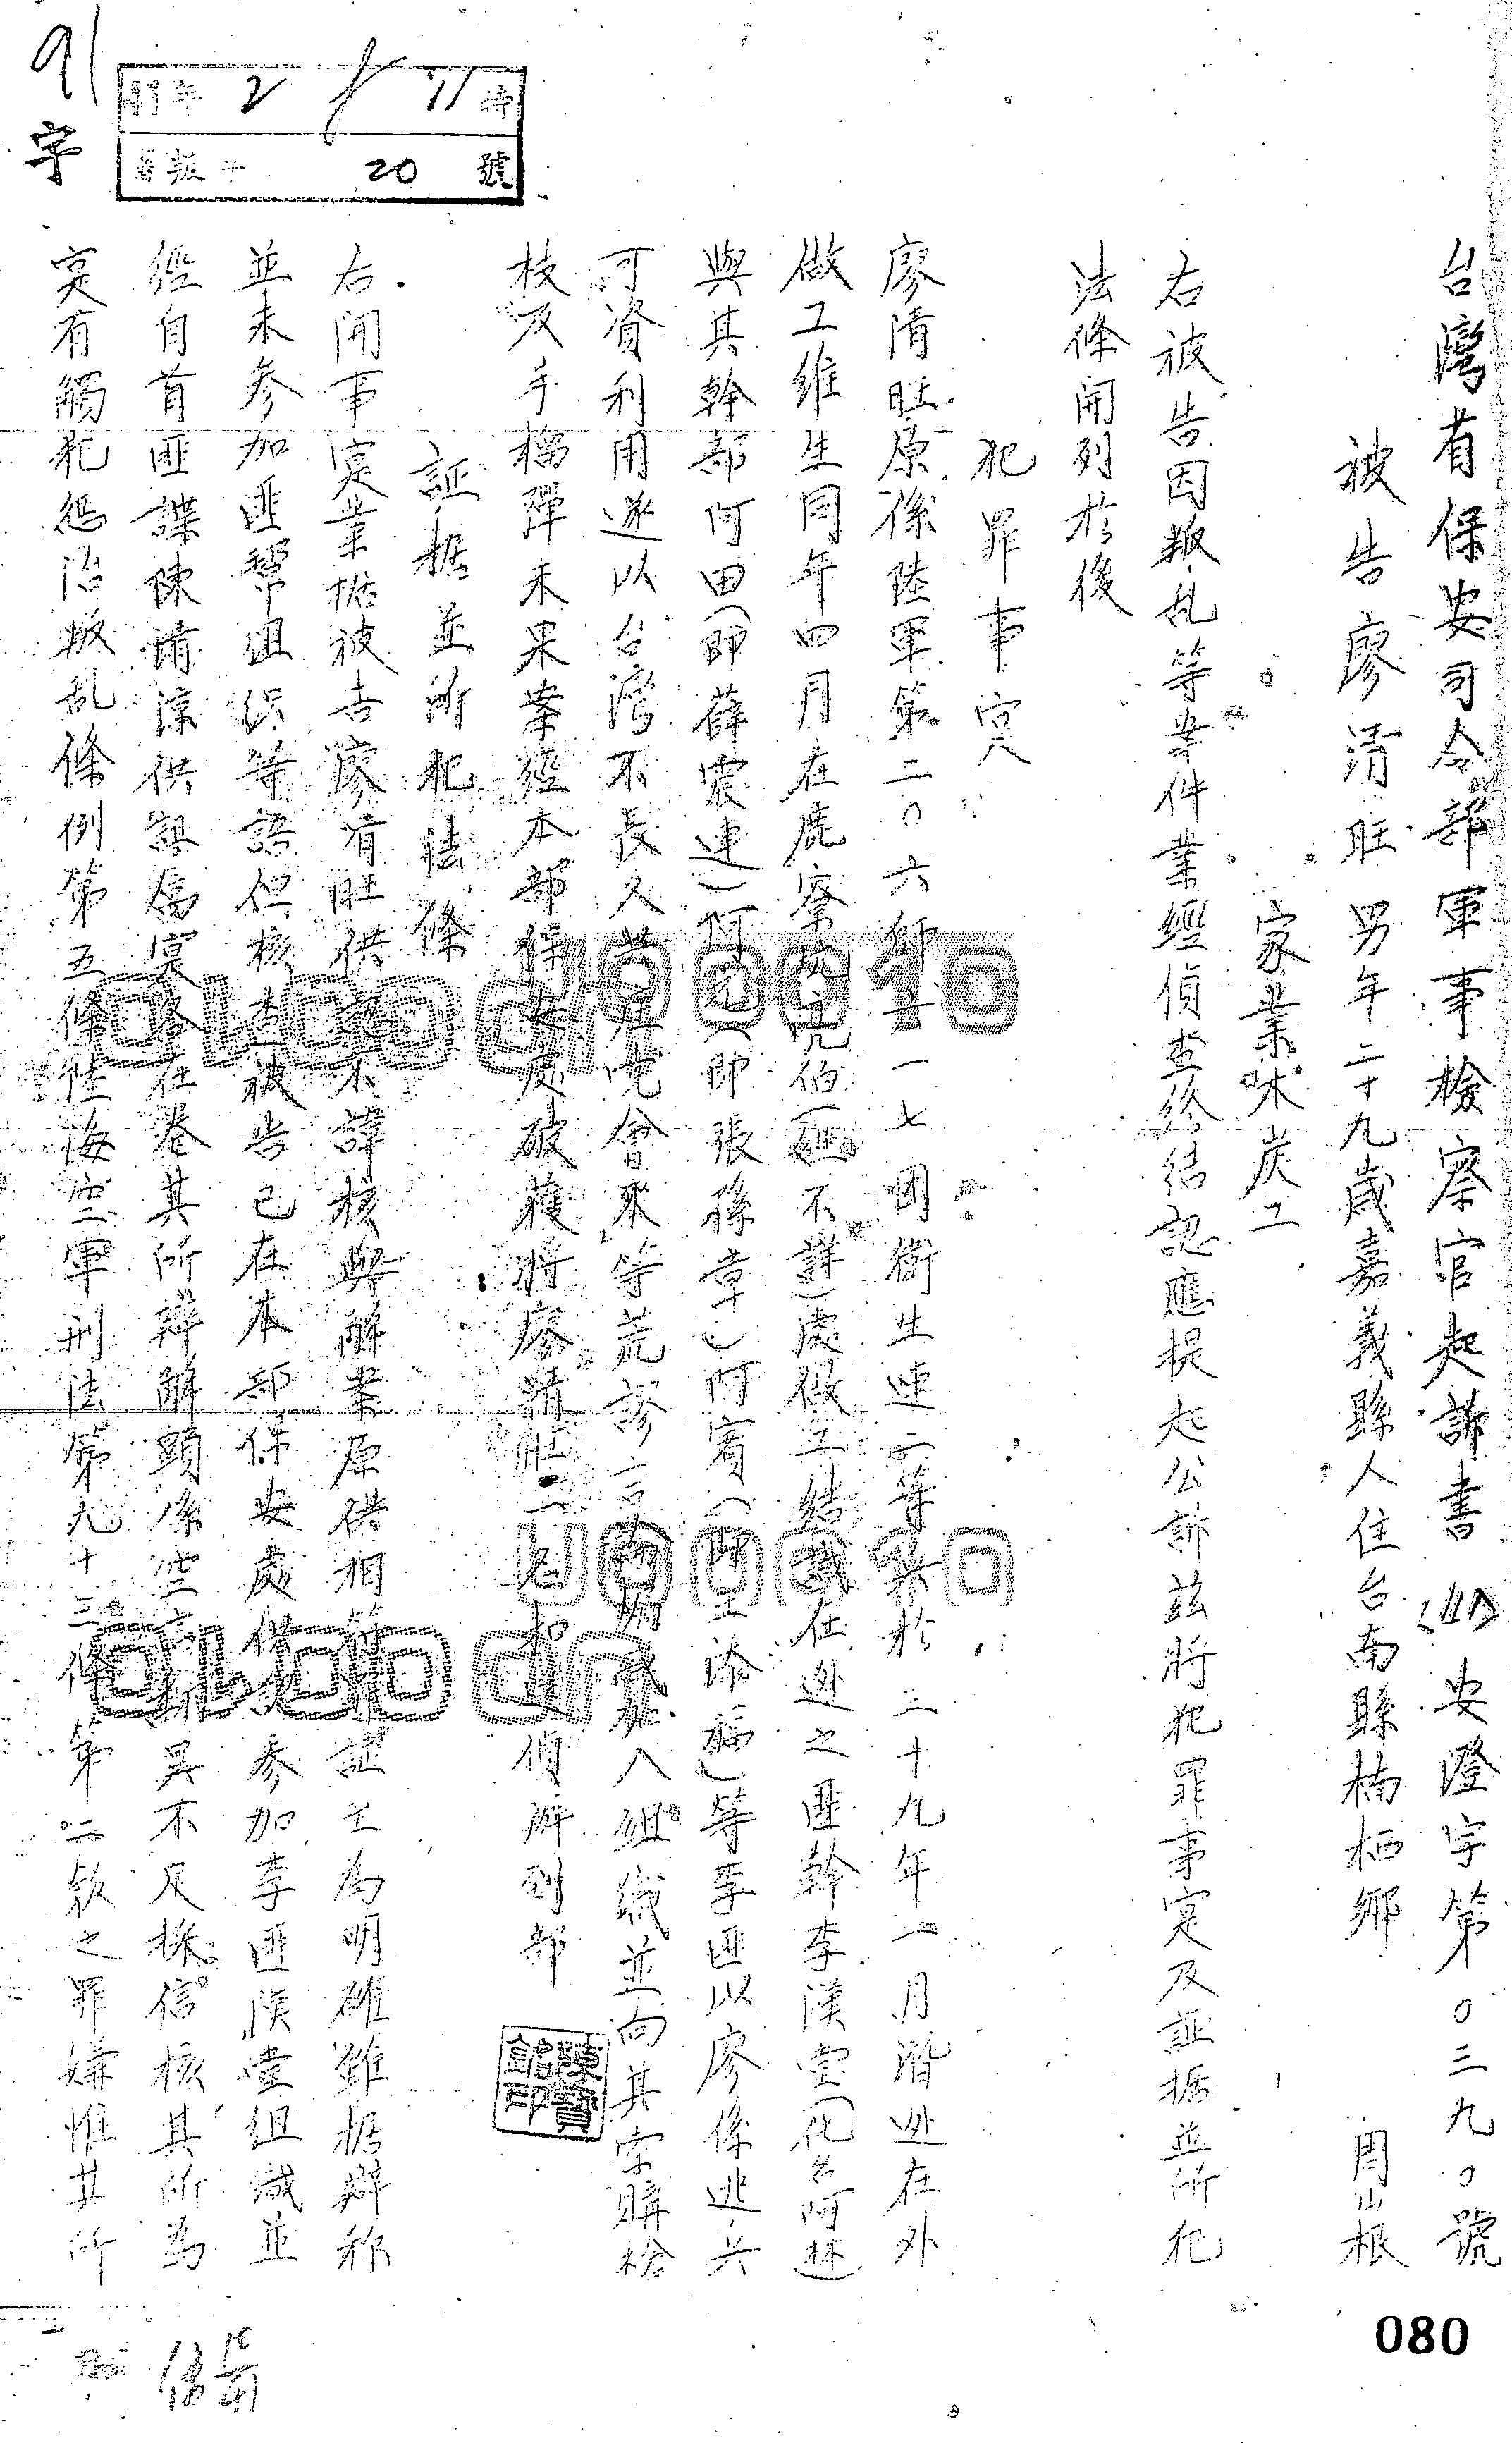 91
字
41年 2 11時
20 號
台灣省保安司令部軍事檢察官起訴書 (41)安澄字第0三九0號
被告廖清旺 男年二十九歲嘉義縣人住台南縣楠栖鄉 周山根
家業木炭工
右被告因叛乱等案件業經偵查終結認應提起公訴茲將犯罪事实及証据並所犯
法條開列於後
犯罪事实
廖清旺原係陸軍第二0六師六一七團衛生連二等兵於三十九年一月潛逃在外
做工維生同年四月在鹿寮坑克伯(姓不詳)處做工結識在逃之匪幹李漢堂(化名阿林)
與其幹部阿田(即薛震連)阿元(即張孫章)阿賓(即王添福)等李匪以廖係逃兵
可資利用遂以台灣不長久共匪吮會來等荒謬言詞煽惑加入組織並向其索購槍
枝及手榴彈未果案經本部保安處破獲將廖清旺一名扣送偵辦到部
陳寶錧印
証据並所犯法條
右開事实業据被告廖清旺供認不諱核與解業原供相符罪証至為明確雖据辯称
並未參加匪幫組织等語但核查被告已在本部保安處供認參加李匪漢堂組織並
經自首匪諜陳清涼供認屬实各在卷其所辯解顯係空言 異不足採信核其所為
实有觸犯懲治叛乱條例第五條陸海空軍刑法第九十三條第二款之罪嫌惟其所
080